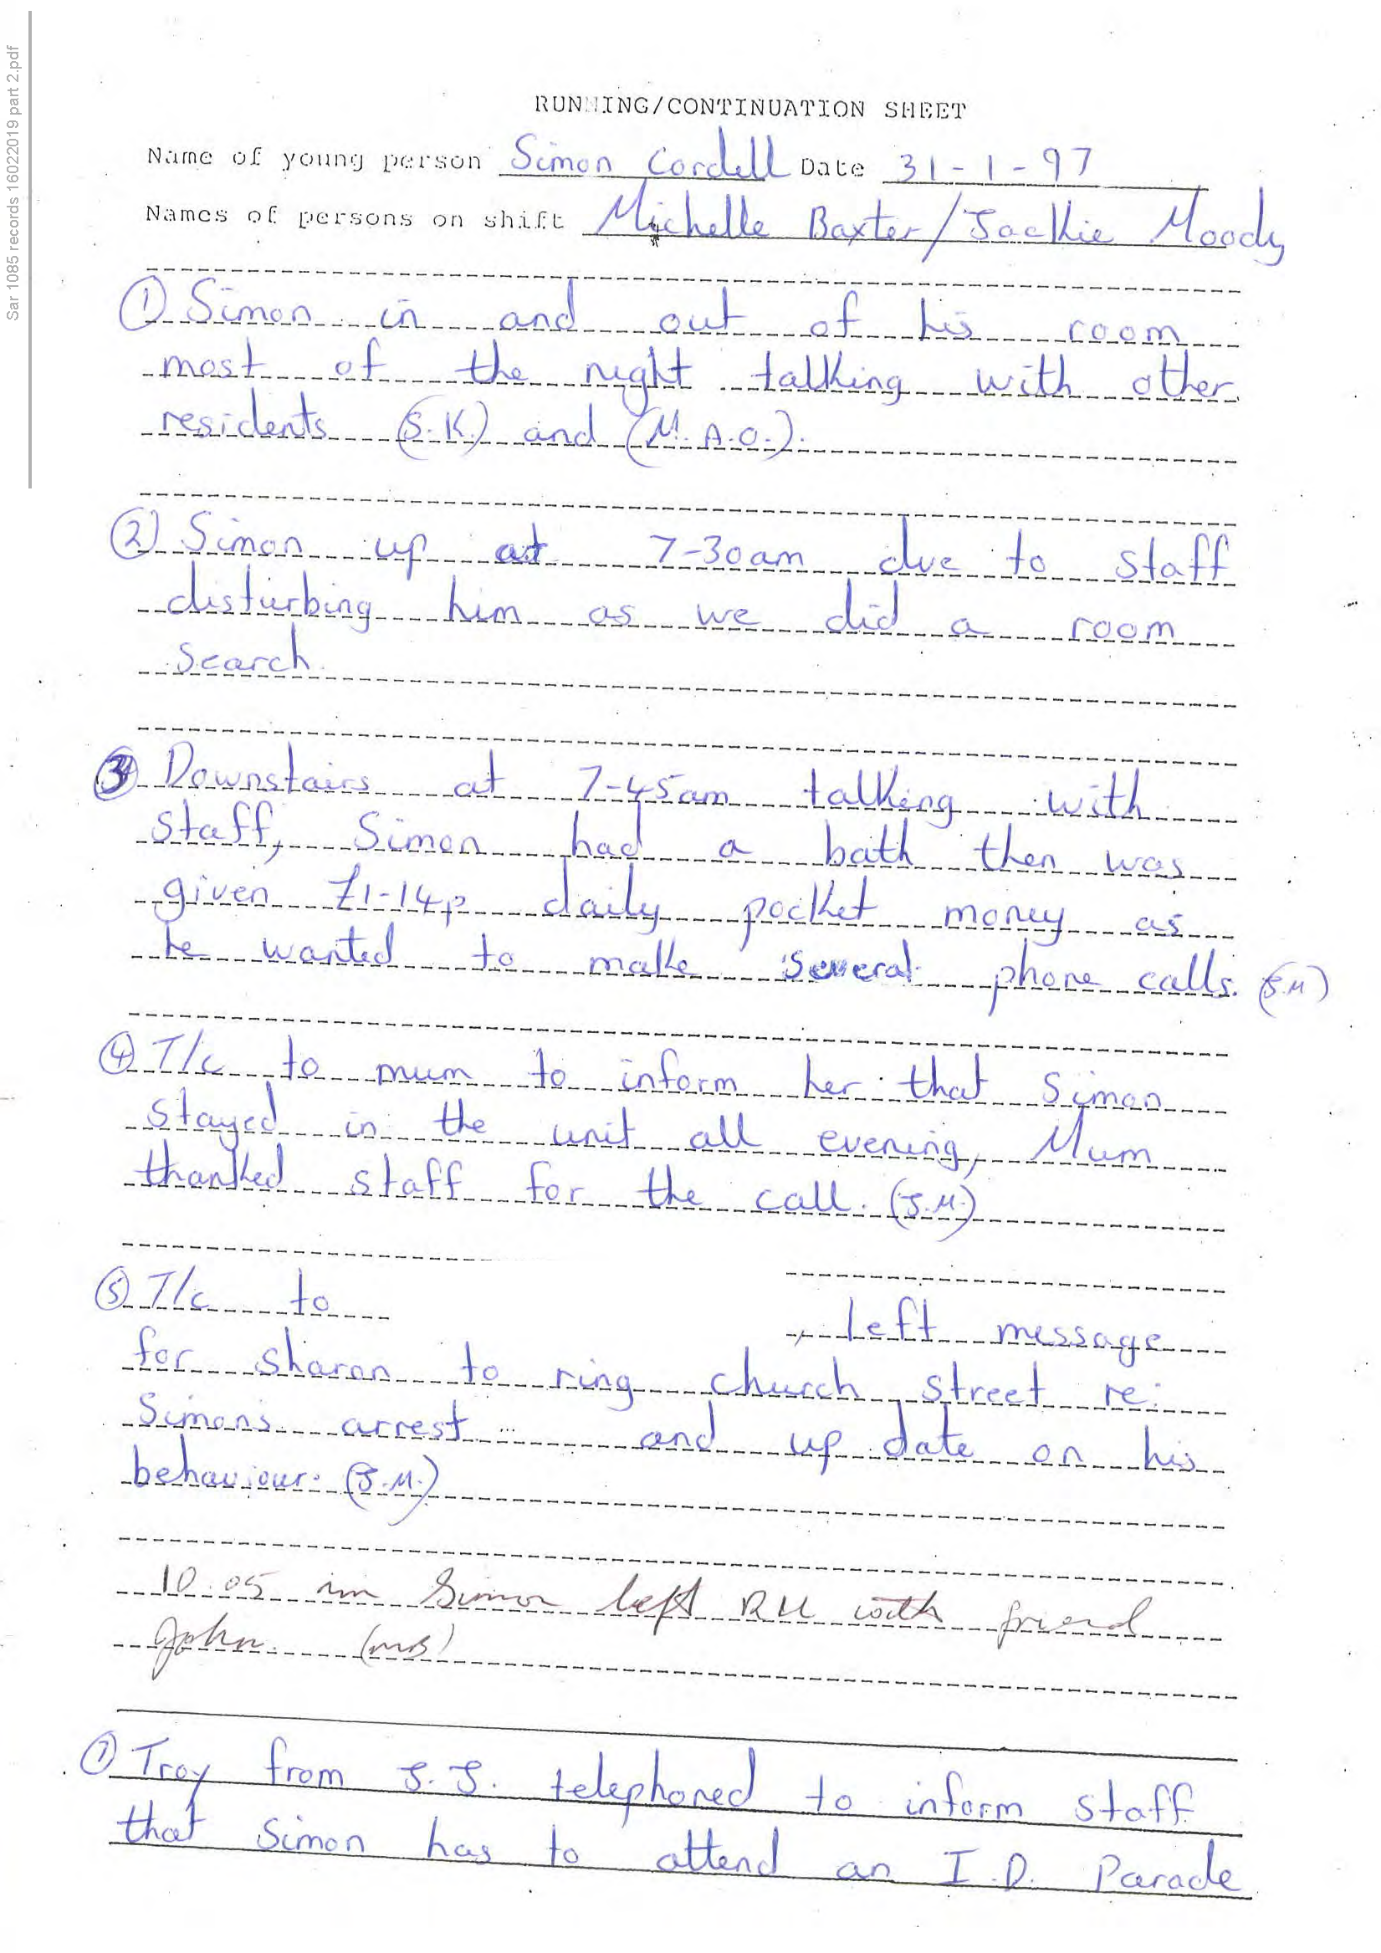 Sar 1085 records 16022019 part 2.pdf
RUNNING/CONTINUATION SHEET
Name of young person Simon Cordell Date 31-1-97
Names of persons on shift Michelle Baxter/Jackie Moody
① Simon in and out of his room
most of the night talking with other
residents (S.K.) and (M.A.O.).
② Simon up at 7-30am due to staff
disturbing him as we did a room
search.
③ Downstairs at 7-45am talking with
staff, Simon had a bath then was
given £1-14p daily pocket money as
he wanted to make several phone calls. (J.M)
④ T/c to mum to inform her that Simon
stayed in the unit all evening, Mum
thanked staff for the call. (J.M.)
⑤ T/c to , left message
for sharon to ring church street re:
Simons arrest and up date on his
behaviour. (J.M.)
10.05 Simon left RU with friend
John. (MB)
⑦ Troy from J.J. telephoned to inform staff
that Simon has to attend an I.D. Parade